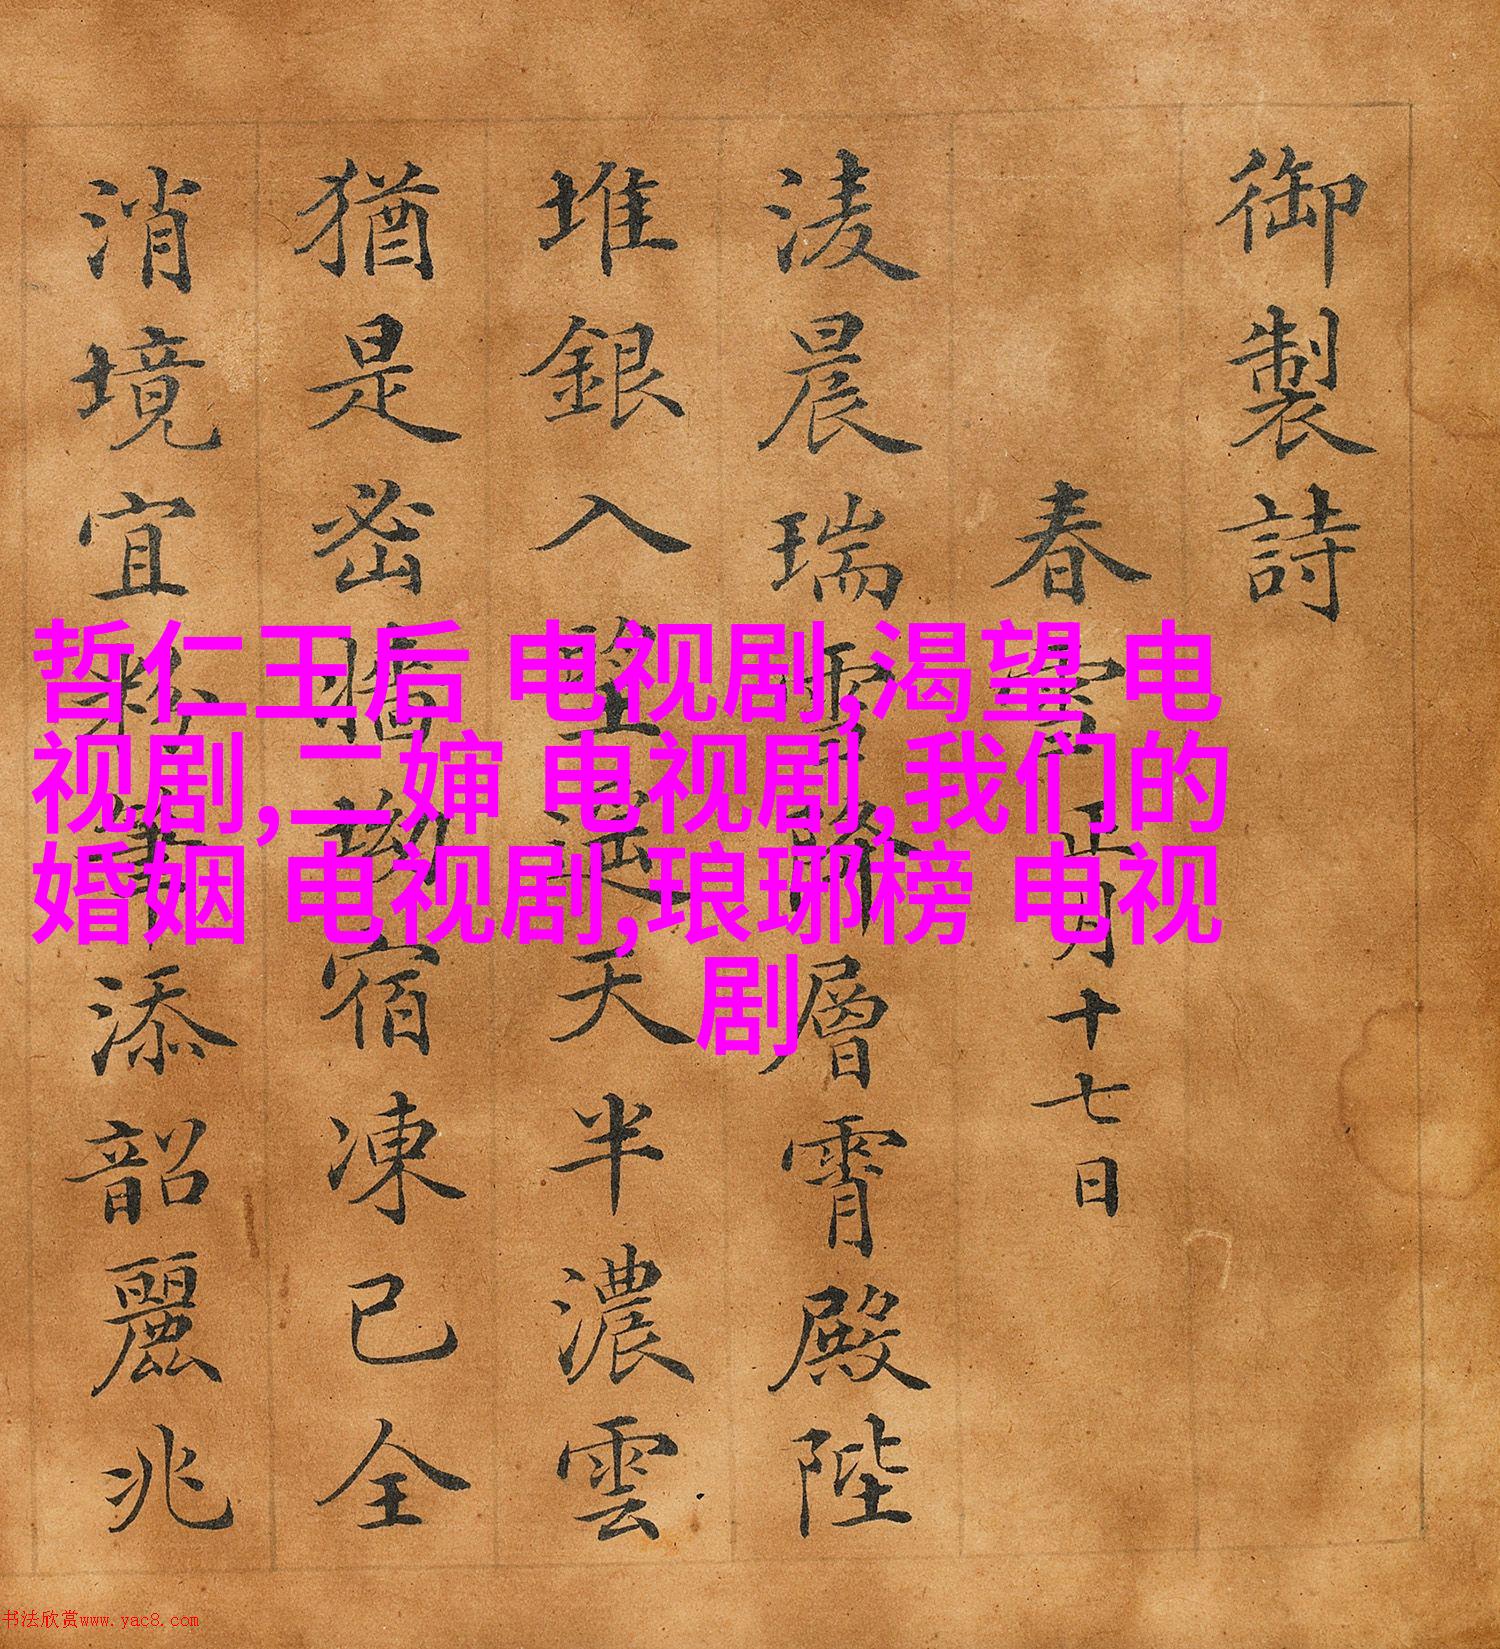 御製詩
春雪正月十七日
淩晨瑞雪降層霄殿陛
堆銀入望天半濃雲
猶是密牆坳宿凍已全
消境宜粉筆添韶麗兆
哲仁王后 电视剧,渴望 电
视剧,二婶 电视剧,我们的
婚姻 电视剧,琅琊榜 电视
剧
书法欣赏www.yac8.com